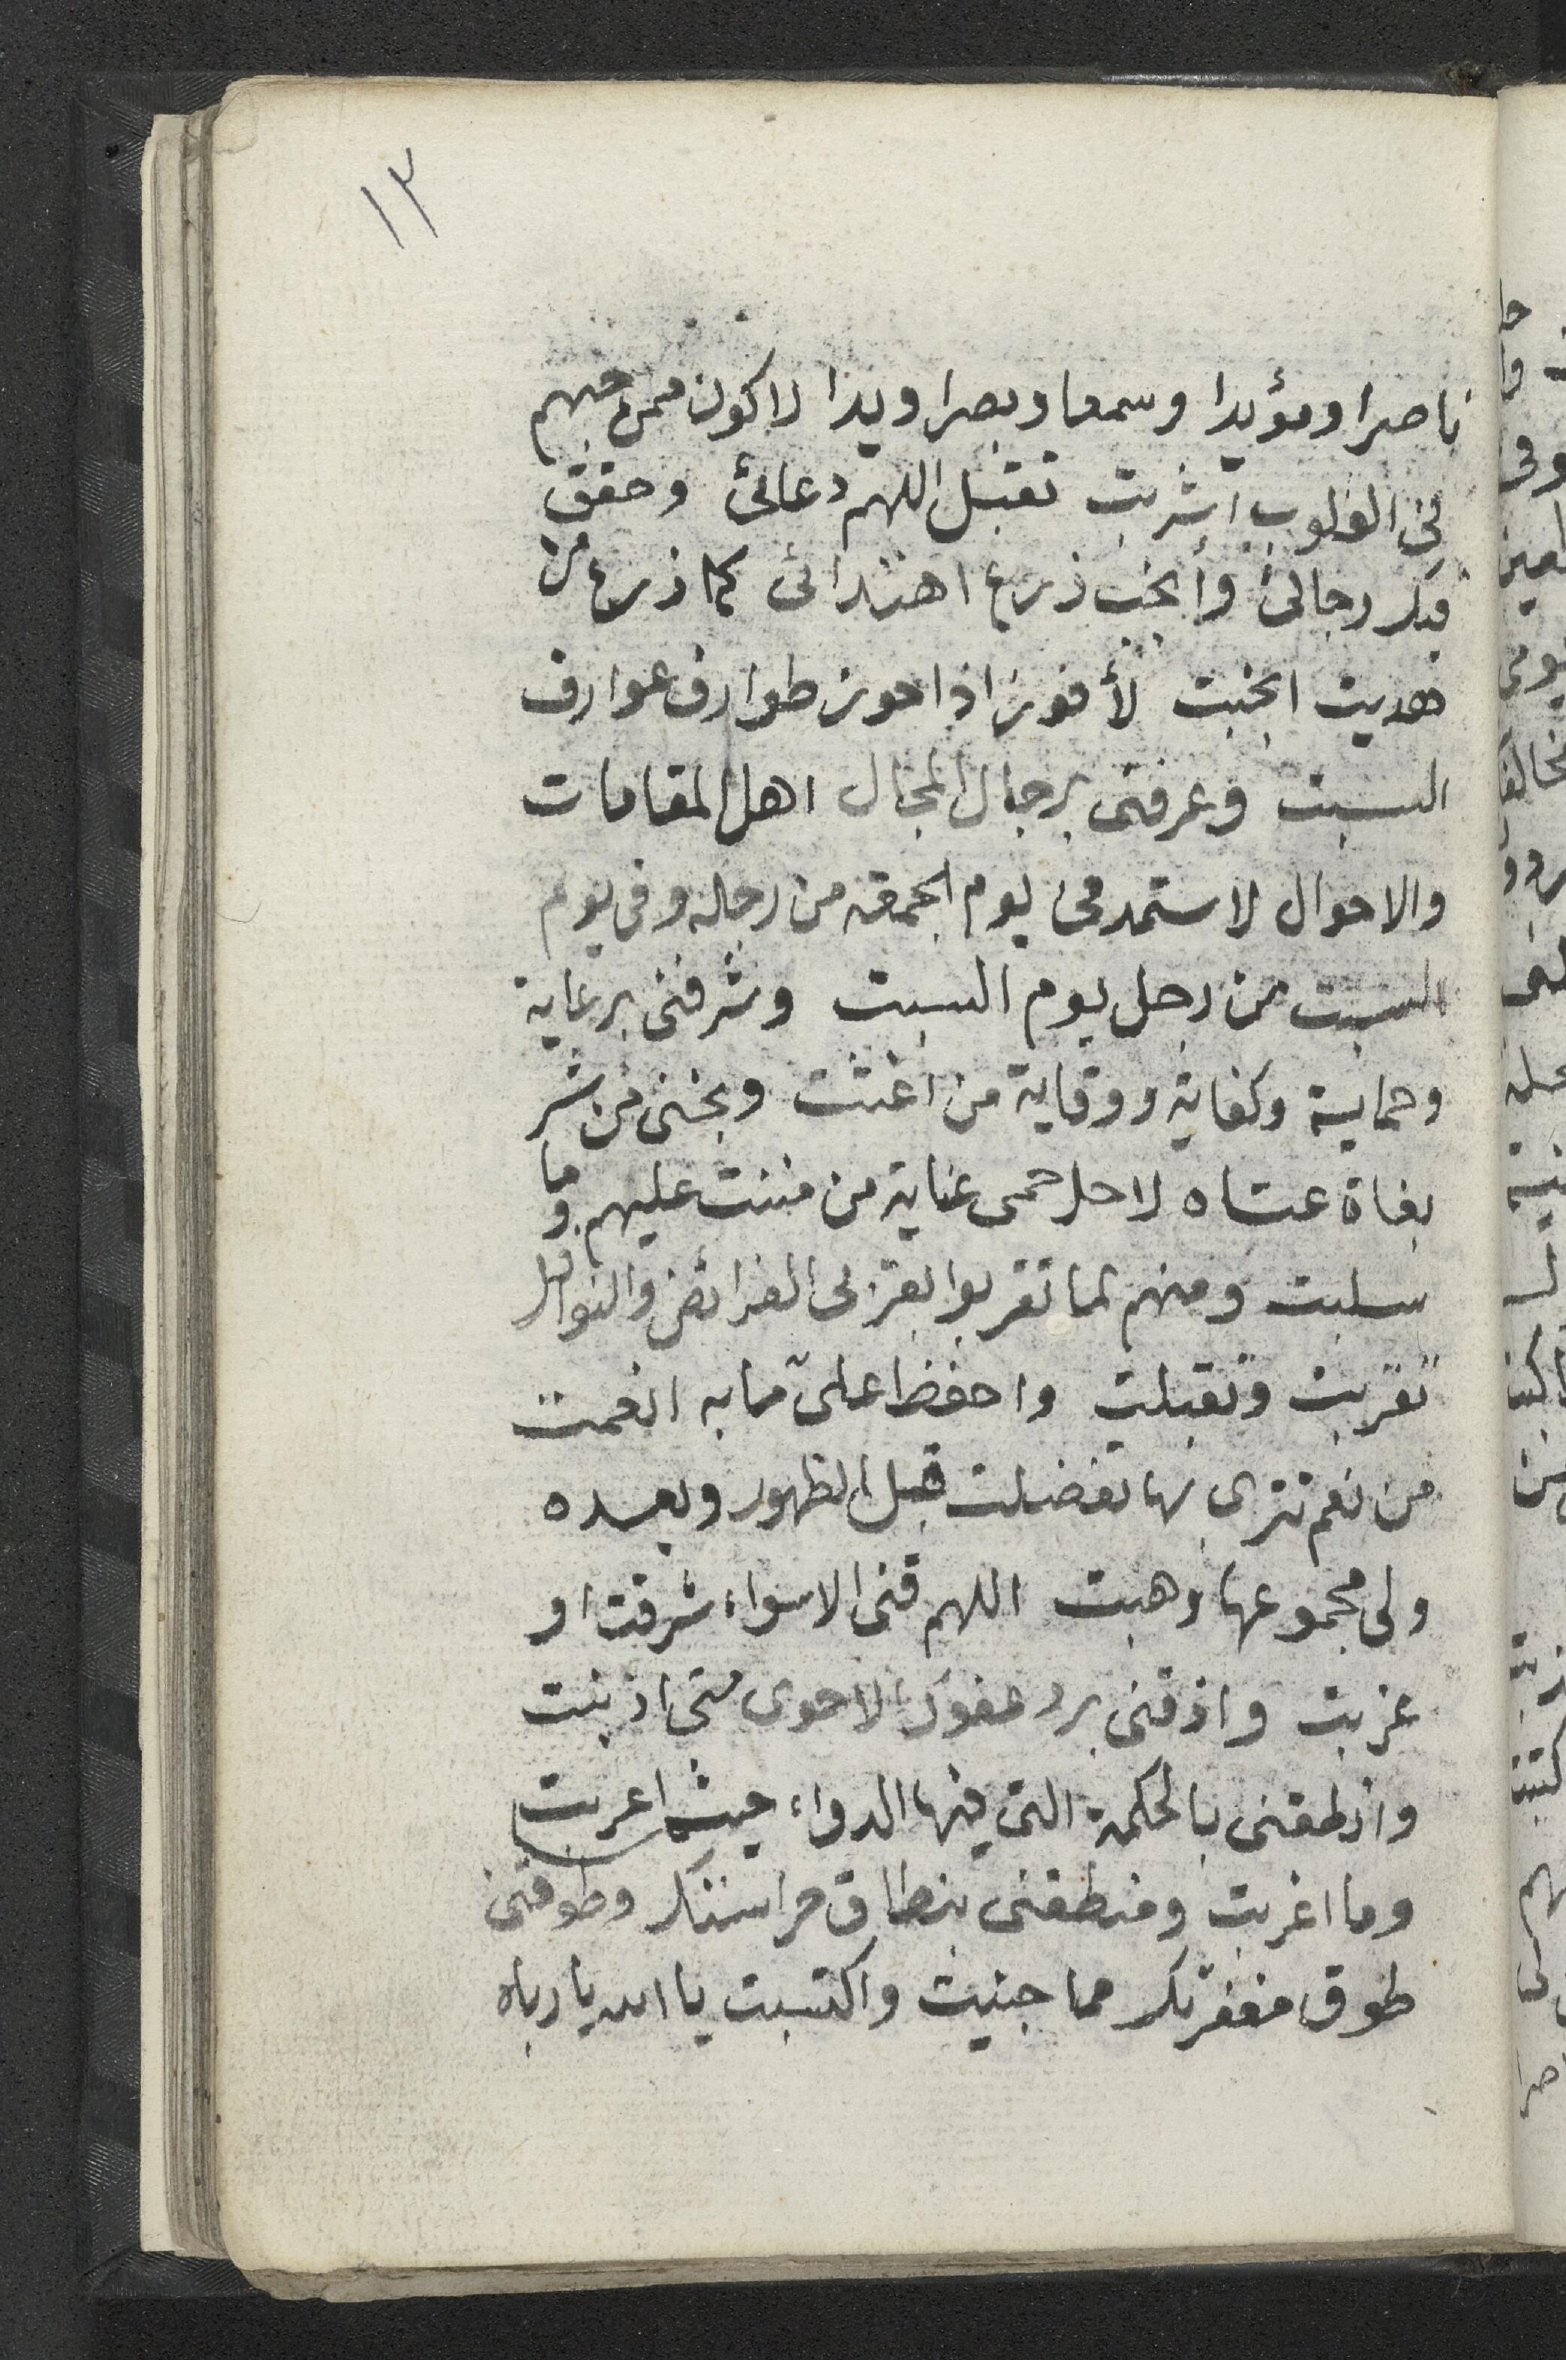 ١٣
ناصرا ومؤيدا وسمعا وبصرا ويدا لاكون ممن حبهم
فى القلوب اشربت تقبل اللهم دعائى وحقق
فيك رجائى وأنجب زرع اهتدائى كما زرع من
هديت انجبت لأفوز اذا حوز طوارف عوارف
السبت وعرفنى برجال المجال اهل المقامات
والاحوال لاستمد فى يوم الجمعة من رجاله وفى يوم
السبت من رجل يوم السبت وشرفنى برعاية
وحماية وكفاية ووقاية من اغثت ونجنى من شر
بغاة عتاه لاحل حمى عناية من مننت عليهم وما
سلبت ومنهم لما تقربوا بقربى الفرائض والنوافل
تقربت وتقبلت واحفظ علىّ ما به انعمت
من نعم تترى بها تفضلت قبل الظهور وبعده
ولى مجموعها وهبت اللهم قنى الاسواء شرقت او
غربت واذقنى برد عفوك الاحوى متى اذنبت
وانطقنى بالحكمة التى فيها الدواء حيث اعربت
وما اغربت ومنطقنى بنطاق حراستك وطوقنى
طوق مغفرتك مما جنيت واكتسبت يا الله يا رباه